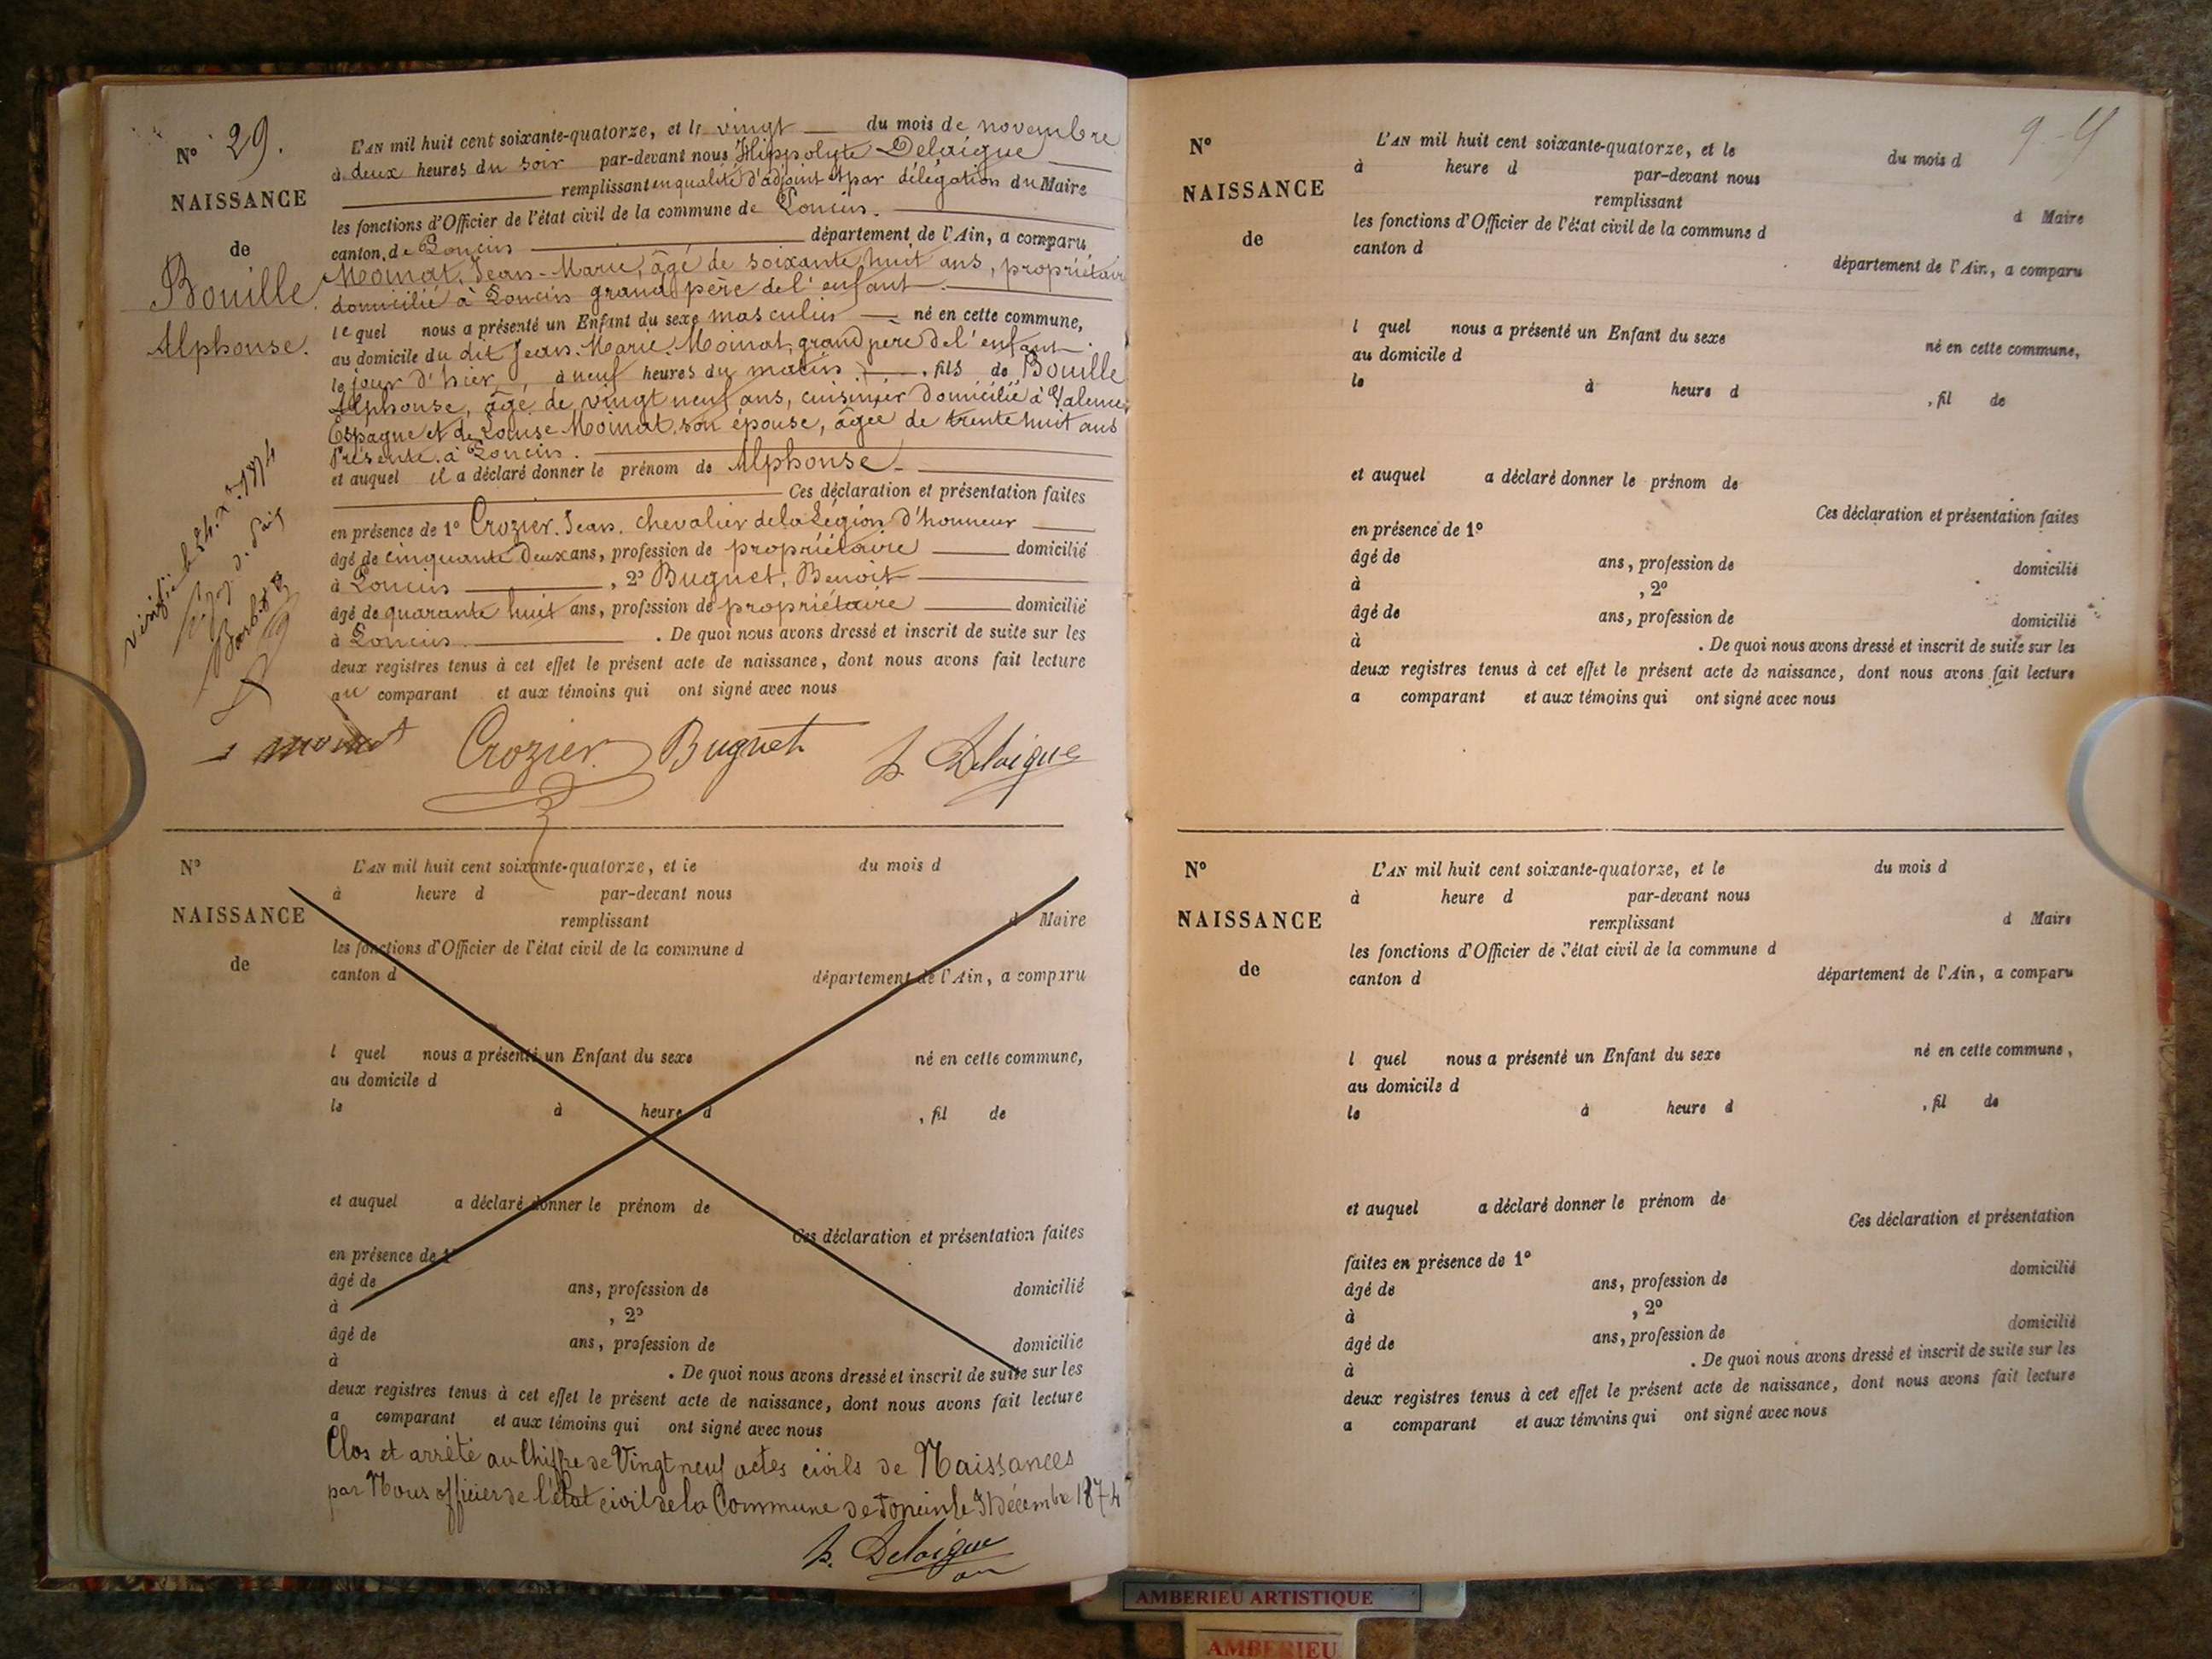 N° 29.
NAISSANCE
de
Bouille
Alphonse.
L'AN mil huit cent soixante-quatorze, et le vingt du mois de novembre
à deux heures du soir par-devant nous Hippolyte Delaigue
remplissant en qualité d'adjoint et par délégation du Maire
les fonctions d'Officier de l'état civil de la commune de Poncin.
canton de Poncin département de l'Ain, a comparu
Moinat, Jean-Marie, âgé de soixante huit ans, propriétaire
domicilié à Poncin grand père de l'enfant.
lequel nous a présenté un Enfant du sexe masculin né en cette commune,
au domicile du dit Jean-Marie Moinat, grand père de l'enfant.
le jour d'hier, à neuf heures du matin, fils de Bouille
Alphonse, âgé de vingt neuf ans, cuisinier domicilié à Valence,
Espagne et de Louise Moinat, son épouse, âgée de trente huit ans
Présente à Poncin.
et auquel il a déclaré donner le prénom de Alphonse
Ces déclaration et présentation faites
en présence de 1° Crozier, Jean, chevalier de la Légion d'honneur
âgé de cinquante deux ans, profession de propriétaire domicilié
à Poncin, 2° Buguet, Benoit
âgé de quarante huit ans, profession de propriétaire domicilié
à Poncin. De quoi nous avons dressé et inscrit de suite sur les
deux registres tenus à cet effet le présent acte de naissance, dont nous avons fait lecture
au comparant et aux témoins qui ont signé avec nous
moinat Crozier Buguet h. Delaigue
N°
NAISSANCE
de
L'AN mil huit cent soixante-quatorze, et le du mois d
à heure d par-devant nous
remplissant d Maire
les fonctions d'Officier de l'état civil de la commune d
canton d département de l'Ain, a comparu
l quel nous a présenté un Enfant du sexe né en cette commune,
au domicile d
le à heure d , fil de
et auquel a déclaré donner le prénom de
Ces déclaration et présentation faites
en présence de 1°
âgé de ans, profession de domicilié
à , 2°
âgé de ans, profession de domicilié
à . De quoi nous avons dressé et inscrit de suite sur les
deux registres tenus à cet effet le présent acte de naissance, dont nous avons fait lecture
a comparant et aux témoins qui ont signé avec nous
Clos et arrêté au Chiffre de Vingt neuf actes civils de Naissances
par Nous officier de l'état civil de la Commune de Poncin le 31 décembre 1874
h. Delaigue
N°
NAISSANCE
de
L'AN mil huit cent soixante-quatorze, et le du mois d
à heure d par-devant nous
remplissant d Maire
les fonctions d'Officier de l'état civil de la commune d
canton d
département de l'Ain, a comparu
l quel nous a présenté un Enfant du sexe né en cette commune,
au domicile d
le à heure d , fil de
et auquel a déclaré donner le prénom de
Ces déclaration et présentation faites
en présence de 1°
âgé de ans, profession de domicilié
à , 2°
âgé de ans, profession de domicilié
à . De quoi nous avons dressé et inscrit de suite sur les
deux registres tenus à cet effet le présent acte de naissance, dont nous avons fait lecture
a comparant et aux témoins qui ont signé avec nous
N°
NAISSANCE
de
L'AN mil huit cent soixante-quatorze, et le du mois d
à heure d par-devant nous
remplissant d Maire
les fonctions d'Officier de l'état civil de la commune d
canton d département de l'Ain, a comparu
l quel nous a présenté un Enfant du sexe né en cette commune,
au domicile d
le à heure d , fil de
et auquel a déclaré donner le prénom de
Ces déclaration et présentation
faites en présence de 1° domicilié
âgé de ans, profession de
à , 2° domicilié
âgé de ans, profession de
à . De quoi nous avons dressé et inscrit de suite sur les
deux registres tenus à cet effet le présent acte de naissance, dont nous avons fait lecture
a comparant et aux témoins qui ont signé avec nous
AMBERIEU ARTISTIQUE
AMBERIEU